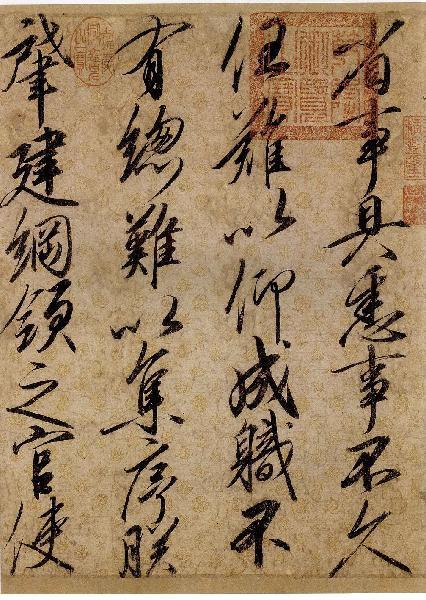 省事具悉事不久
任難以仰成職不
有總難以集序朕
肇建綱領之官使